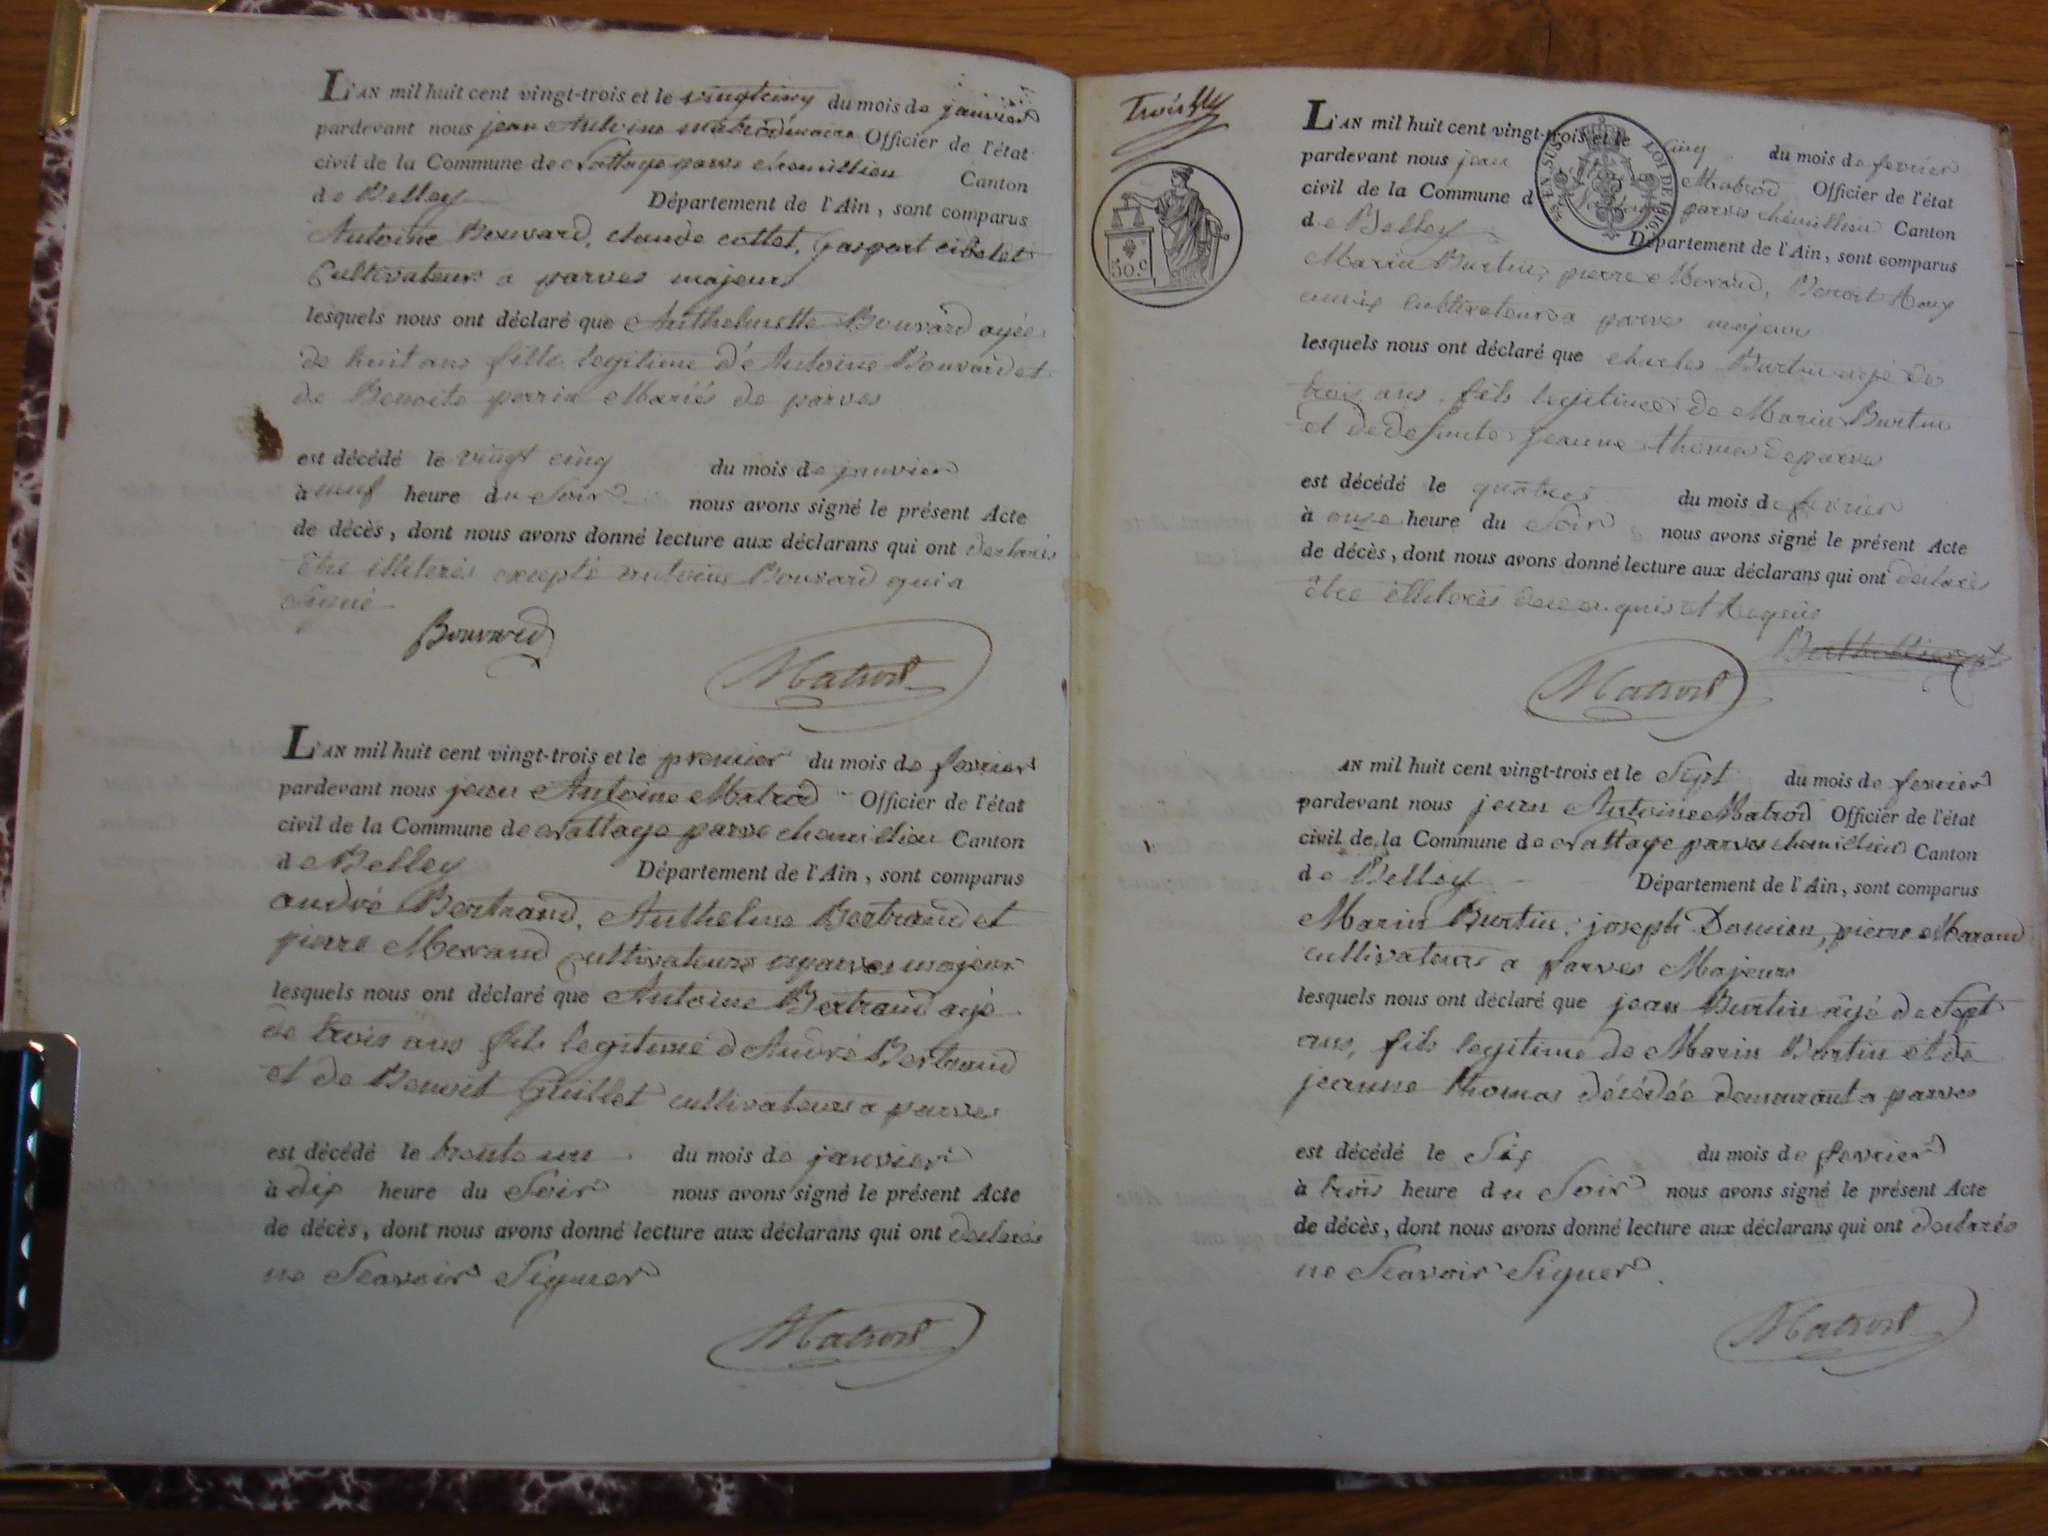 L'AN mil huit cent vingt-trois et le vingtcinq du mois de janvier
pardevant nous jean Antoine matrod maire Officier de l'état
civil de la Commune de Nattage parve chemillieu Canton
de Belley Département de l'Ain, sont comparus
Antoine Bouvard, claude cottet, gaspart cibelet
Cultivateurs a parves majeurs
lesquels nous ont déclaré que Anthelmette Bouvard agée
de huit ans fille legitime d'Antoine Bouvard et
de Benoite perrin Mariés de parves
est décédé le vingt cinq du mois de janvier
à neuf heure du Soir nous avons signé le présent Acte
de décès, dont nous avons donné lecture aux déclarans qui ont declarés
être illiterés excepté antoine Bouvard qui a
Signé
Bouvard
Matrod
L'AN mil huit cent vingt-trois et le premier du mois de fevrier
pardevant nous jean Antoine Matrod Officier de l'état
civil de la Commune de Nattage parve chemillieu Canton
de Belley Département de l'Ain, sont comparus
andré Bertrand, Anthelme Bertrand et
pierre Merand cultivateurs a parves majeurs
lesquels nous ont déclaré que Antoine Bertrand agé
de trois ans fils legitime d'André Bertrand
et de Benoit Guillet cultivateurs a parves
est décédé le trente un du mois de janvier
à dix heure du Soir nous avons signé le présent Acte
de décès, dont nous avons donné lecture aux déclarans qui ont declarés
ne Scavoir Signer
Matrod
Trois
50.c
EN SUS LOI DE 1816
L'AN mil huit cent vingt-trois et le cinq du mois de fevrier
pardevant nous jean Matrod Officier de l'état
civil de la Commune d parves chemillieu Canton
de Belley Département de l'Ain, sont comparus
Marin Burtin, pierre Merand, Benoit Roux
cultivateurs a parves majeurs
lesquels nous ont déclaré que charles Burtin agé de
trois ans fils legitime de Marin Burtin
et de defunte jeanne thomas de parves
est décédé le quatre du mois de fevrier
à onze heure du Soir nous avons signé le présent Acte
de décès, dont nous avons donné lecture aux déclarans qui ont declarés
être illiterés de ce enquis et requis
Matrod
AN mil huit cent vingt-trois et le Sept du mois de fevrier
pardevant nous jean Antoine Matrod Officier de l'état
civil de la Commune de Nattage parves chemillieu Canton
de Belley Département de l'Ain, sont comparus
Marin Burtin, joseph Domien, pierre Merand
cultivateurs a parves Majeurs
lesquels nous ont déclaré que jean Burtin agé de Sept
ans, fils legitime de Marin Burtin et de
jeanne thomas décédée demeurant a parves
est décédé le Six du mois de fevrier
à trois heure du Soir nous avons signé le présent Acte
de décès, dont nous avons donné lecture aux déclarans qui ont declarés
ne Scavoir Signer
Matrod